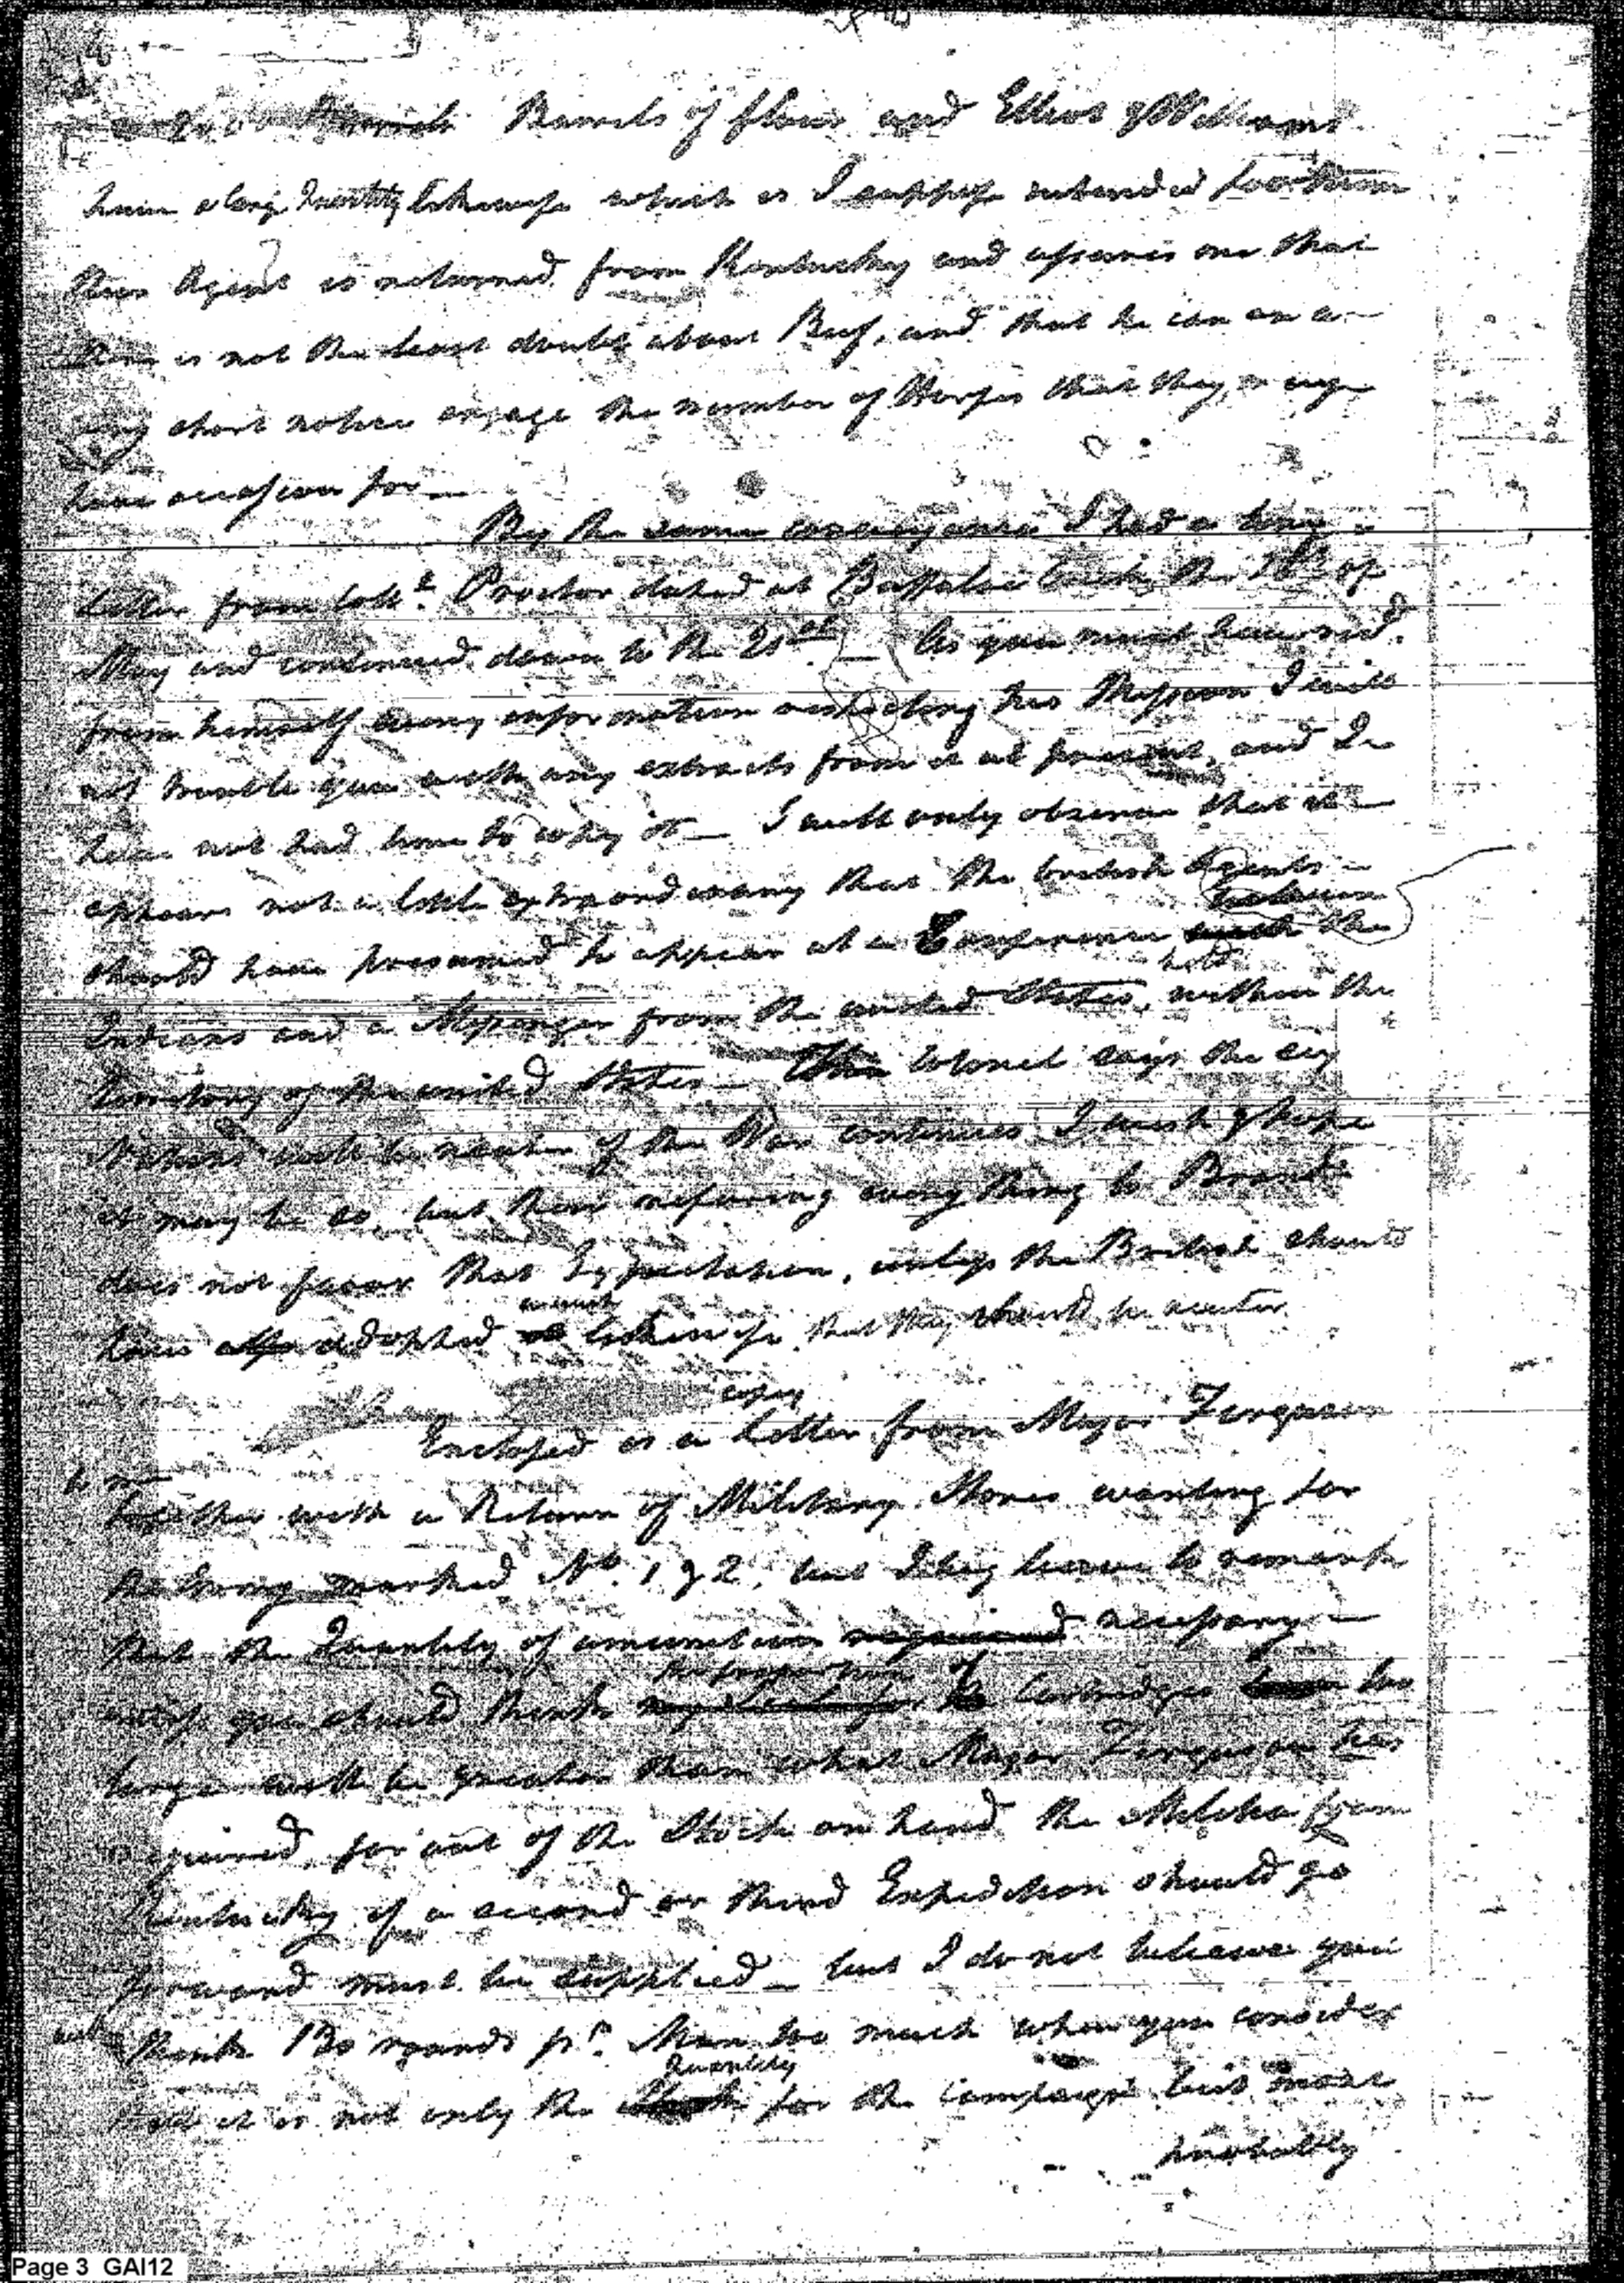 Barrels of flour and Elliot & Williams
have a large Quantity likewise which is I suppose intended for them
their Agent is returned from Kentucky and assures me that
there is not the least doubt about Beef, and that he can on a
very short notice engage the number of Horses that they may
have occasion for—
By the same conveyance I had a long
letter from Coll. Proctor dated at Buffaloe Creek the of
May and continued down to the 21st — As you must have recd.
from himself every information respecting his Mission I will
not trouble you with any extracts from it at present, and I
have not had time to copy it — I will only observe that it
appears not a little extraordinary that the british Agents
should have presumed to appear at a Conference with between the
held
Indians and a Messenger from the united States, within the
territory of the united States — The Colonel says the six
Nations will be neuter if the War continues I wish & hope
it may be so, but their referring every thing to Brandt
does not favor that Expectation, unless the British should
have also adopted a wish likewise that they should be neuter.
copy
Enclosed is a Letter from Major Ferguson
to me
together with a Return of Military Stores wanting for
the Army marked No. 1 & 2, but I beg leave to remark
that the Quantity of amunition required necessary—
the proportion of
unless you should think for the Cartridges too
large will be greater than what Major Ferguson has
required, for out of the Stock on hand the Militia from
Kentucky if a second or third Expedition should go
forward must be supplied — but I do not believe you
will think 130 rounds pr. Man too much when you consider
Quantity
that it is not only the Stock for the Campaign but most
probably
Page 3 GAI12